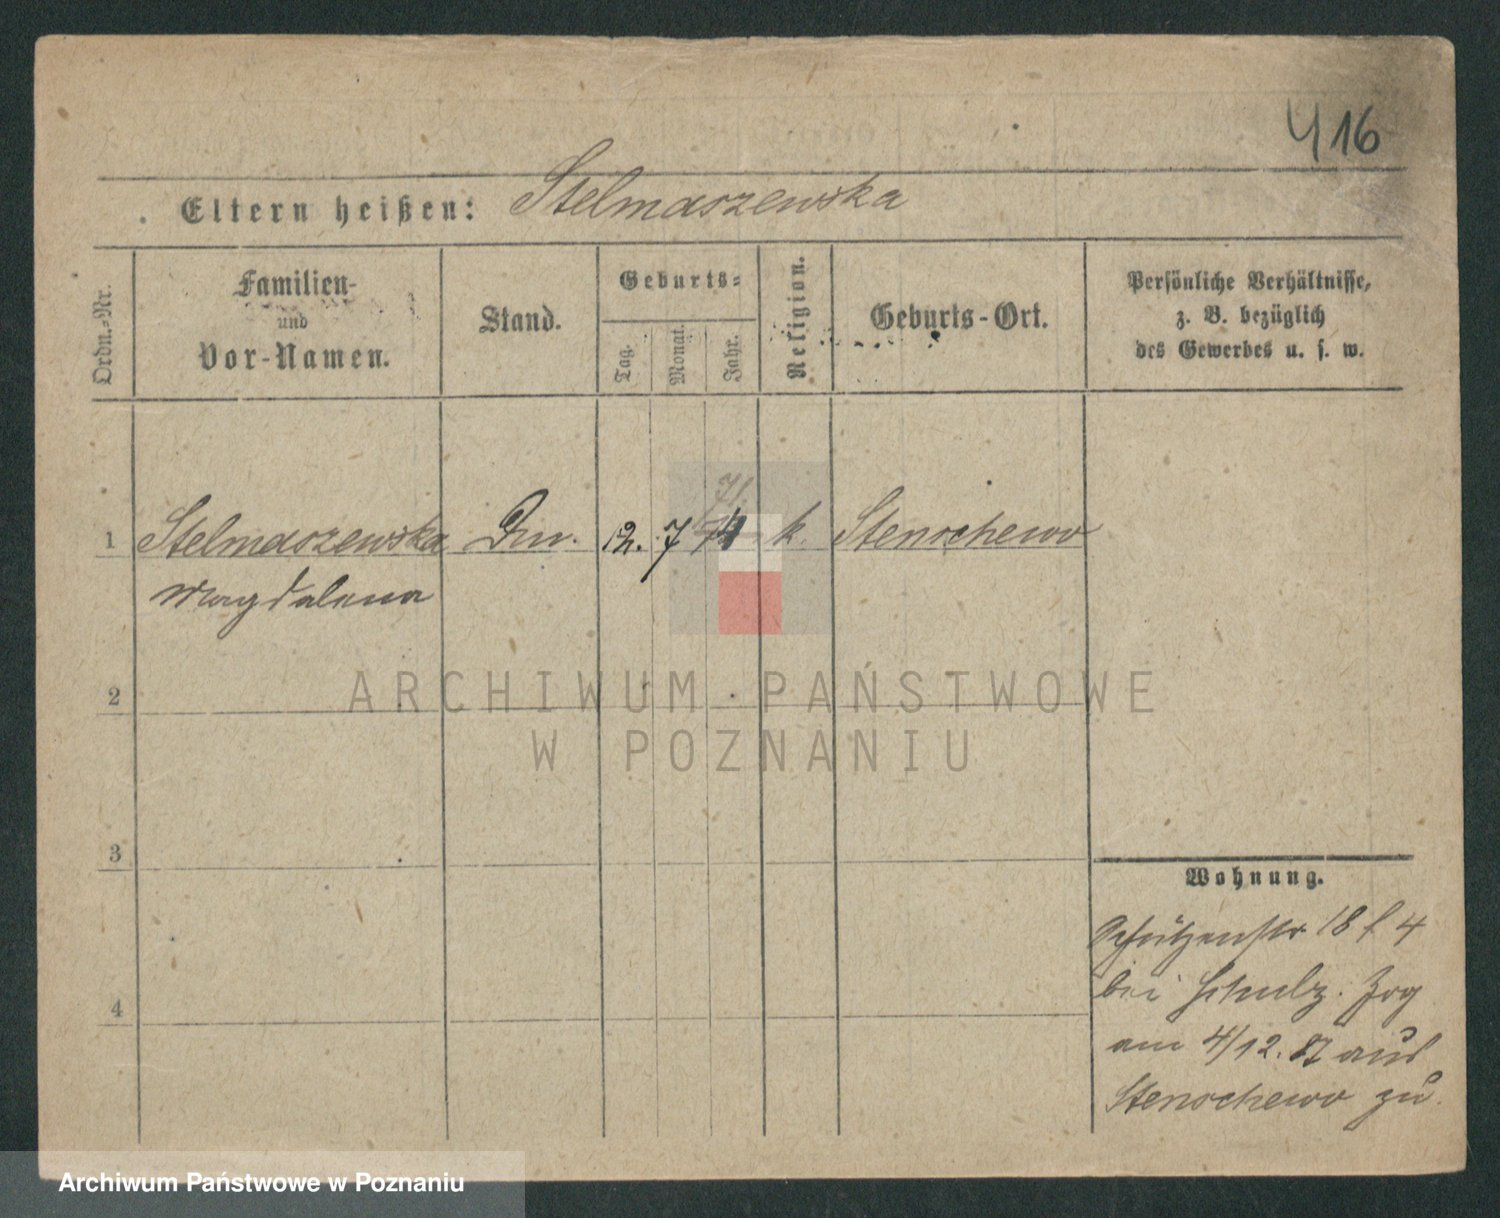 416
Eltern heißen: Stelmaszewska
Ordn.-Nr.
Familien-
und
Vor-Namen.
Stand.
Geburts-
Tag.
Monat.
Jahr.
Religion.
Geburts-Ort.
Persönliche Verhältnisse,
z. B. bezüglich
des Gewerbes u. s. w.
71.
1 Stelmaszewska 12. 7 k. Stenschewo
Magdalena
2
3
4
Wohnung.
Schützenstr 18 4
bei Schulz. Zog
am 4/12. 87 aus
Stenschewo zu.
ARCHIWUM PAŃSTWOWE
W POZNANIU
Archiwum Państwowe w Poznaniu